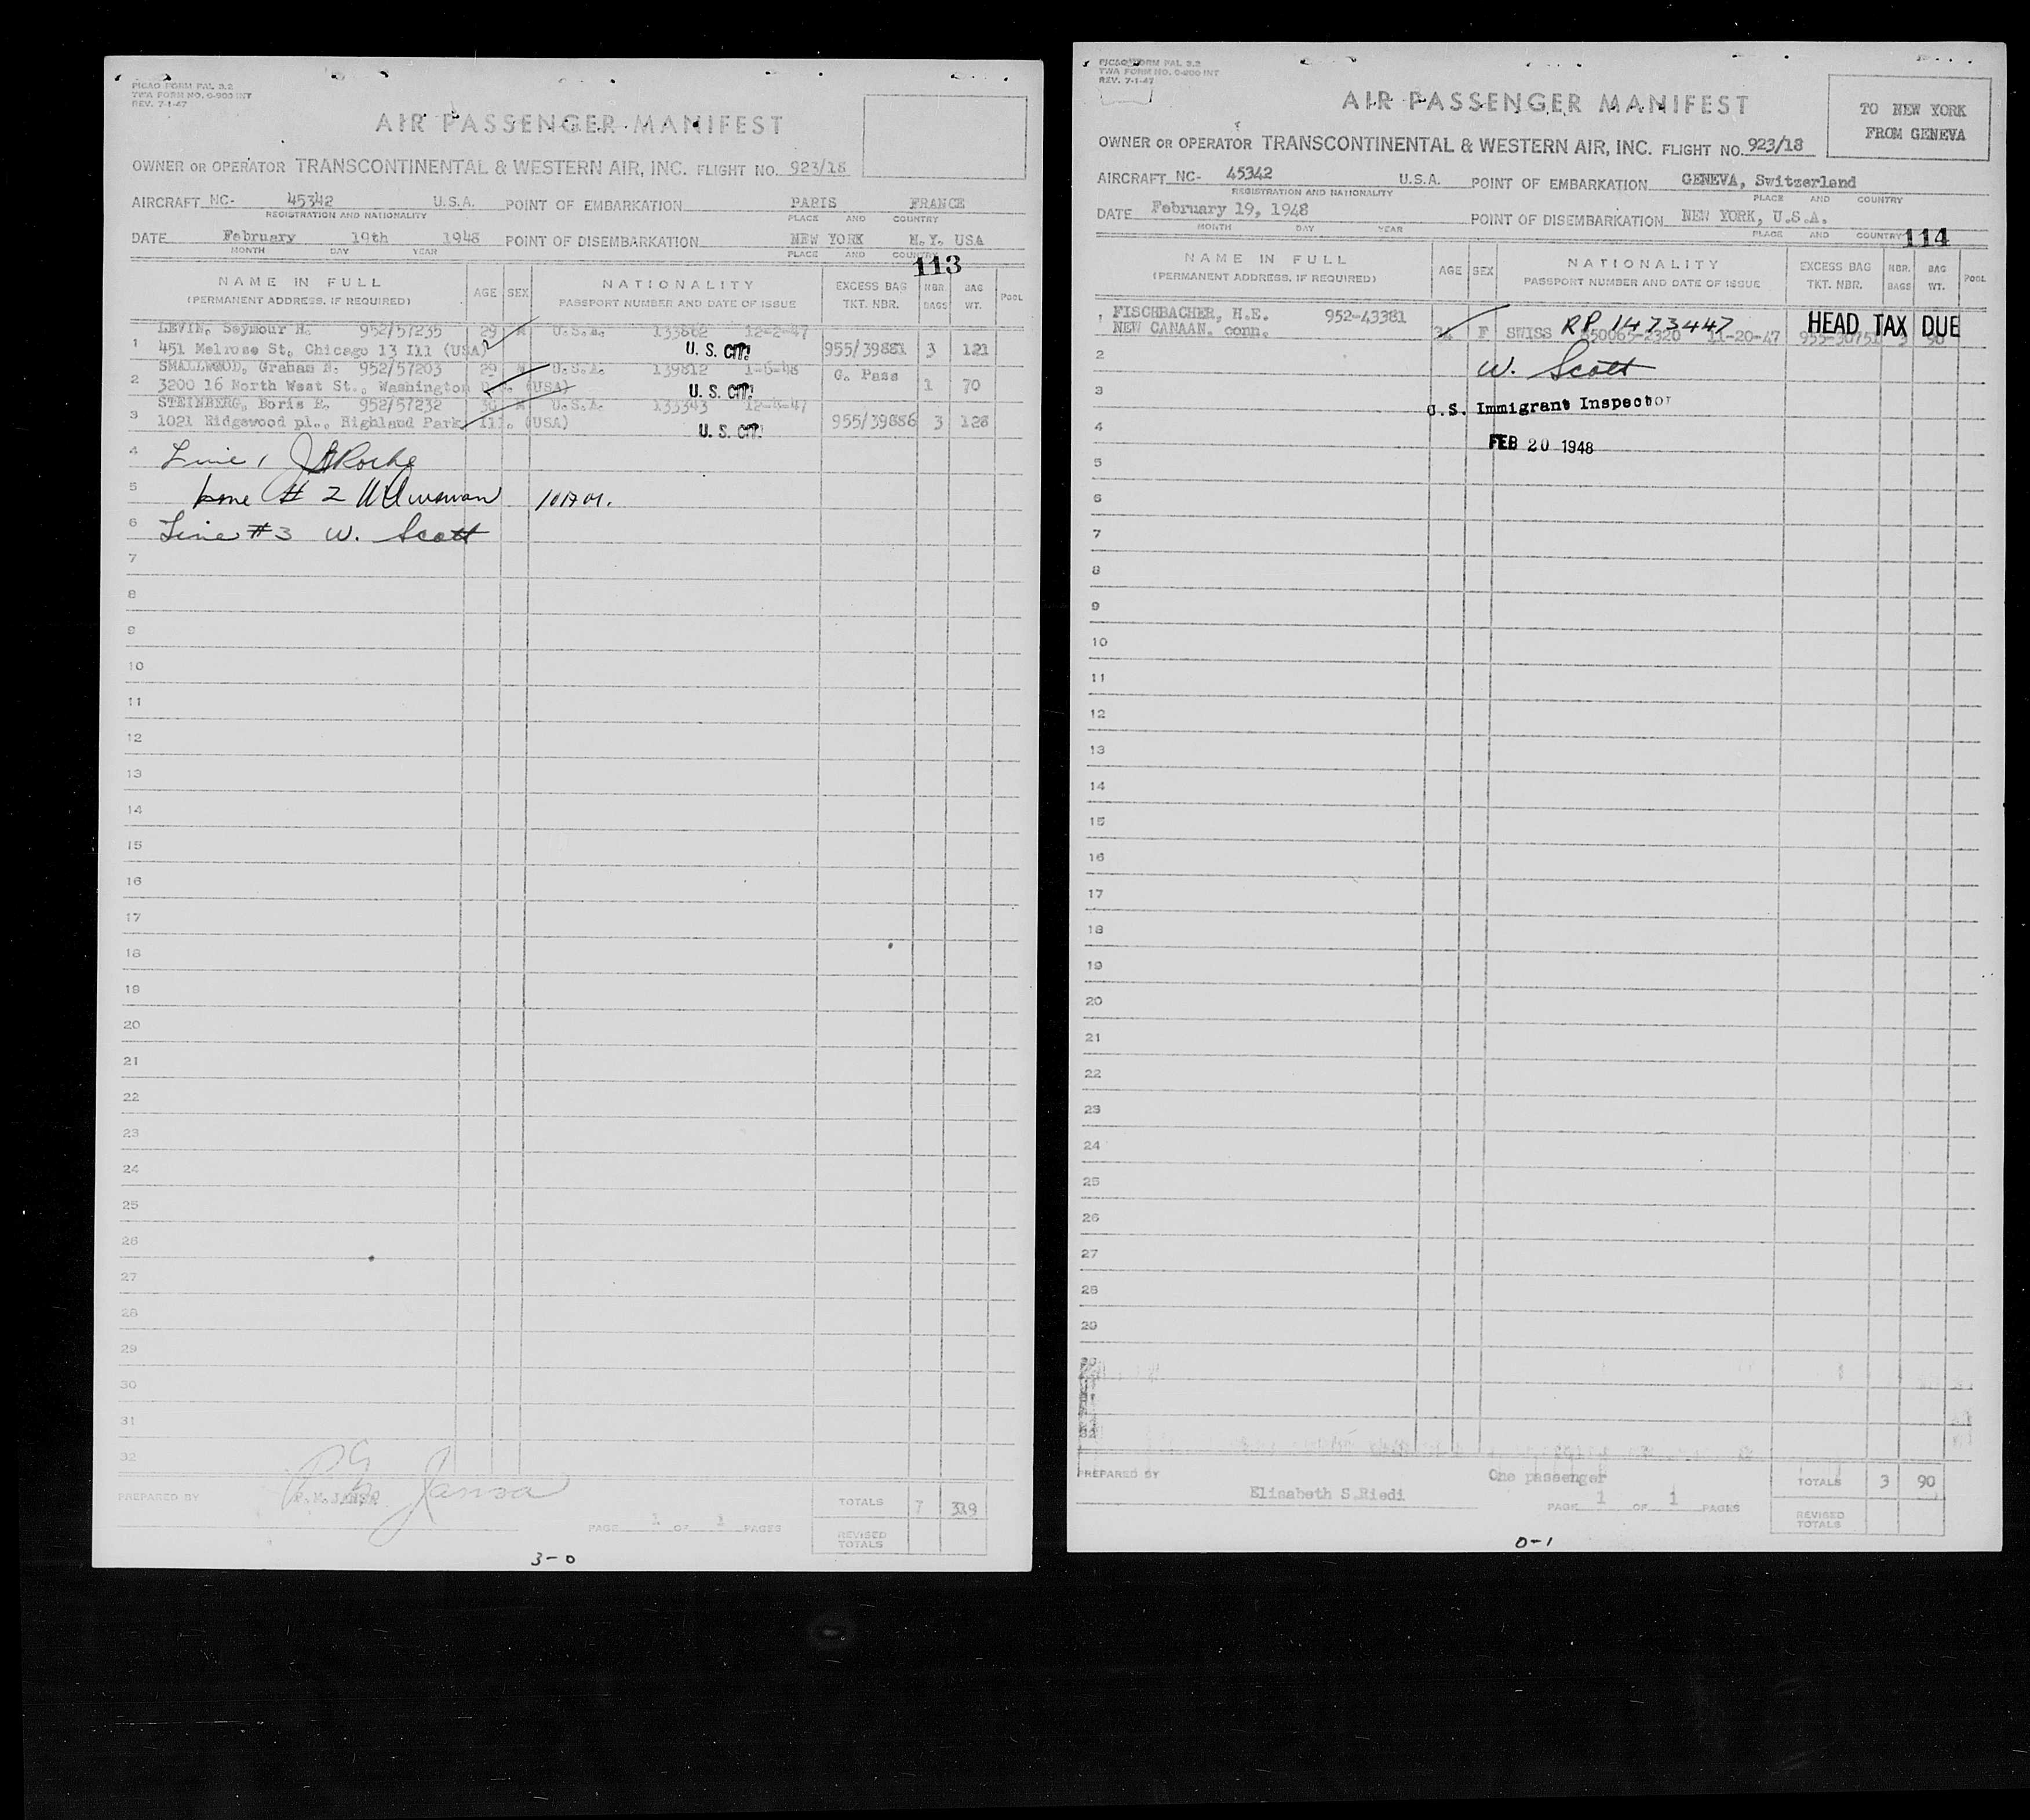 PICAO FORM PAL 3.2
TWA FORM NO. O-900 INT
REV. 7-1-47
AIR PASSENGER MANIFEST
OWNER OR OPERATOR TRANSCONTINENTAL & WESTERN AIR, INC. FLIGHT NO. 923/18
AIRCRAFT NC- 45342 U.S.A. POINT OF EMBARKATION PARIS FRANCE
REGISTRATION AND NATIONALITY PLACE AND COUNTRY
DATE February 19th 1948 POINT OF DISEMBARKATION NEW YORK N.Y. USA
MONTH DAY YEAR PLACE AND COUNTRY
113
NAME IN FULL AGE SEX NATIONALITY EXCESS BAG NBR. BAG POOL
(PERMANENT ADDRESS, IF REQUIRED) PASSPORT NUMBER AND DATE OF ISSUE TKT. NBR. BAGS WT.
LEVIN, Seymour H. 952/57235 29 M U.S.A. 133662 12-2-47
1 451 Melrose St, Chicago 13 Ill (USA) U. S. CIT. 955/39881 3 121
SMALLWOOD, Graham N. 952/57203 29 M U.S.A. 139812 1-6-48 G. Pass
2 3200 16 North West St., Washington (USA) U. S. CIT. 1 70
STEINBERG, Boris 952/57232 U.S.A. 133343 12-4-47
3 1021 Ridgewood pl., Highland Park, Ill. (USA) U. S. CIT. 955/39886 3 128
4 Line 1
5 Line # 2
6 Line #3 W. Scott
7
8
9
10
11
12
13
14
15
16
17
18
19
20
21
22
23
24
25
26
27
28
29
30
31
32
PREPARED BY Jansa
TOTALS 7 319
PAGE 1 OF 1 PAGES
REVISED
TOTALS
3-0
PICAO FORM PAL 3.2
TWA FORM NO. O-900 INT
REV. 7-1-47
AIR PASSENGER MANIFEST
TO NEW YORK
FROM GENEVA
OWNER OR OPERATOR TRANSCONTINENTAL & WESTERN AIR, INC. FLIGHT NO. 923/18
AIRCRAFT NC- 45342 U.S.A. POINT OF EMBARKATION GENEVA, Switzerland
REGISTRATION AND NATIONALITY PLACE AND COUNTRY
DATE February 19, 1948 POINT OF DISEMBARKATION NEW YORK, U.S.A.
MONTH DAY YEAR PLACE AND COUNTRY
114
NAME IN FULL AGE SEX NATIONALITY EXCESS BAG NBR. BAG POOL
(PERMANENT ADDRESS, IF REQUIRED) PASSPORT NUMBER AND DATE OF ISSUE TKT. NBR. BAGS WT.
1 FISCHBACHER, H.E. 952-43381 RP 1473447 HEAD TAX DUE
NEW CANAAN. conn. F SWISS 11-20-47
2 W. Scott
3 U.S. Immigrant Inspector
4 FEB 20 1948
5
6
7
8
9
10
11
12
13
14
15
16
17
18
19
20
21
22
23
24
25
26
27
28
29
PREPARED BY One passenger TOTALS 3 90
Elisabeth S.Riedi
PAGE 1 OF 1 PAGES
REVISED
TOTALS
0-1